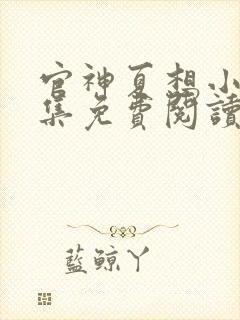 官神夏想小
集免費閱讀
藍鯨丫